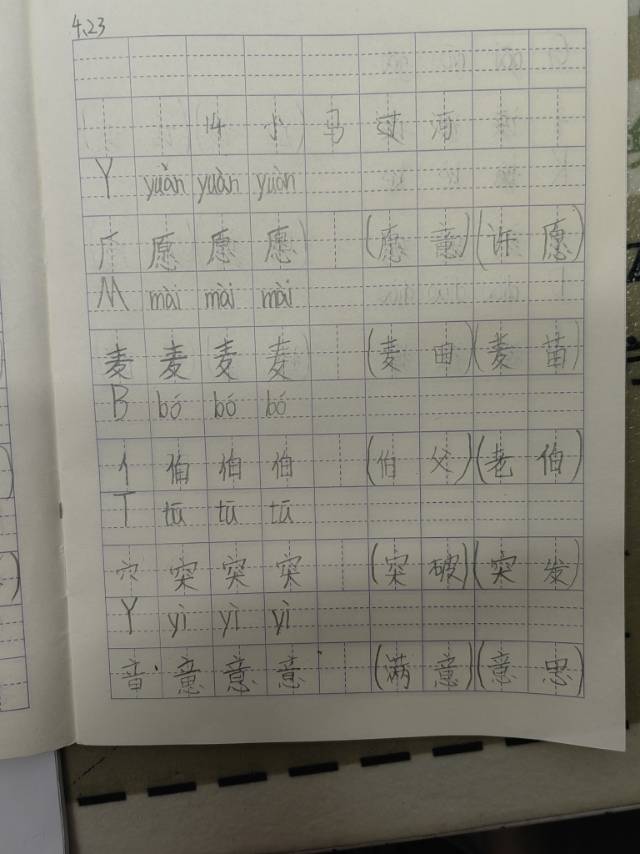 4.23
14 小马过河
Y yuàn yuàn yuàn
厂 愿 愿 愿 (愿意)(许愿)
M mài mài mài
麦 麦 麦 麦 (麦田)(麦苗)
B bó bó bó
亻 伯 伯 伯 (伯父)(老伯)
T tū tū tū
穴 突 突 突 (突破)(突发)
Y yì yì yì
音 意 意 意 (满意)(意思)